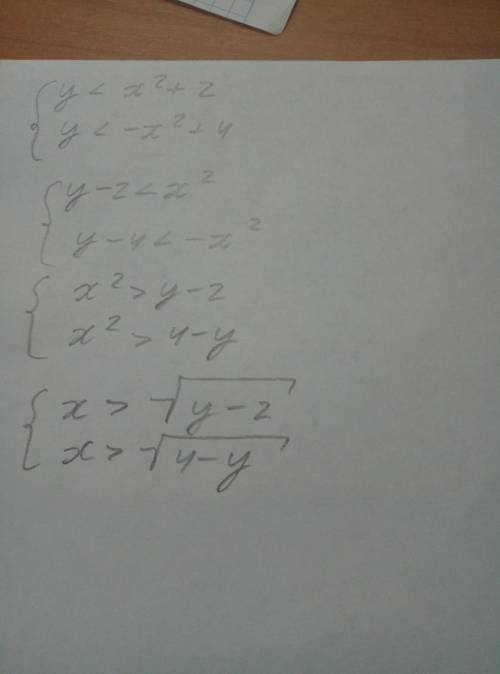 y < x² + 2
y < -x² + 4
y - 2 < x²
y - 4 < -x²
x² > y - 2
x² > 4 - y
x > √(y - 2)
x > √(4 - y)